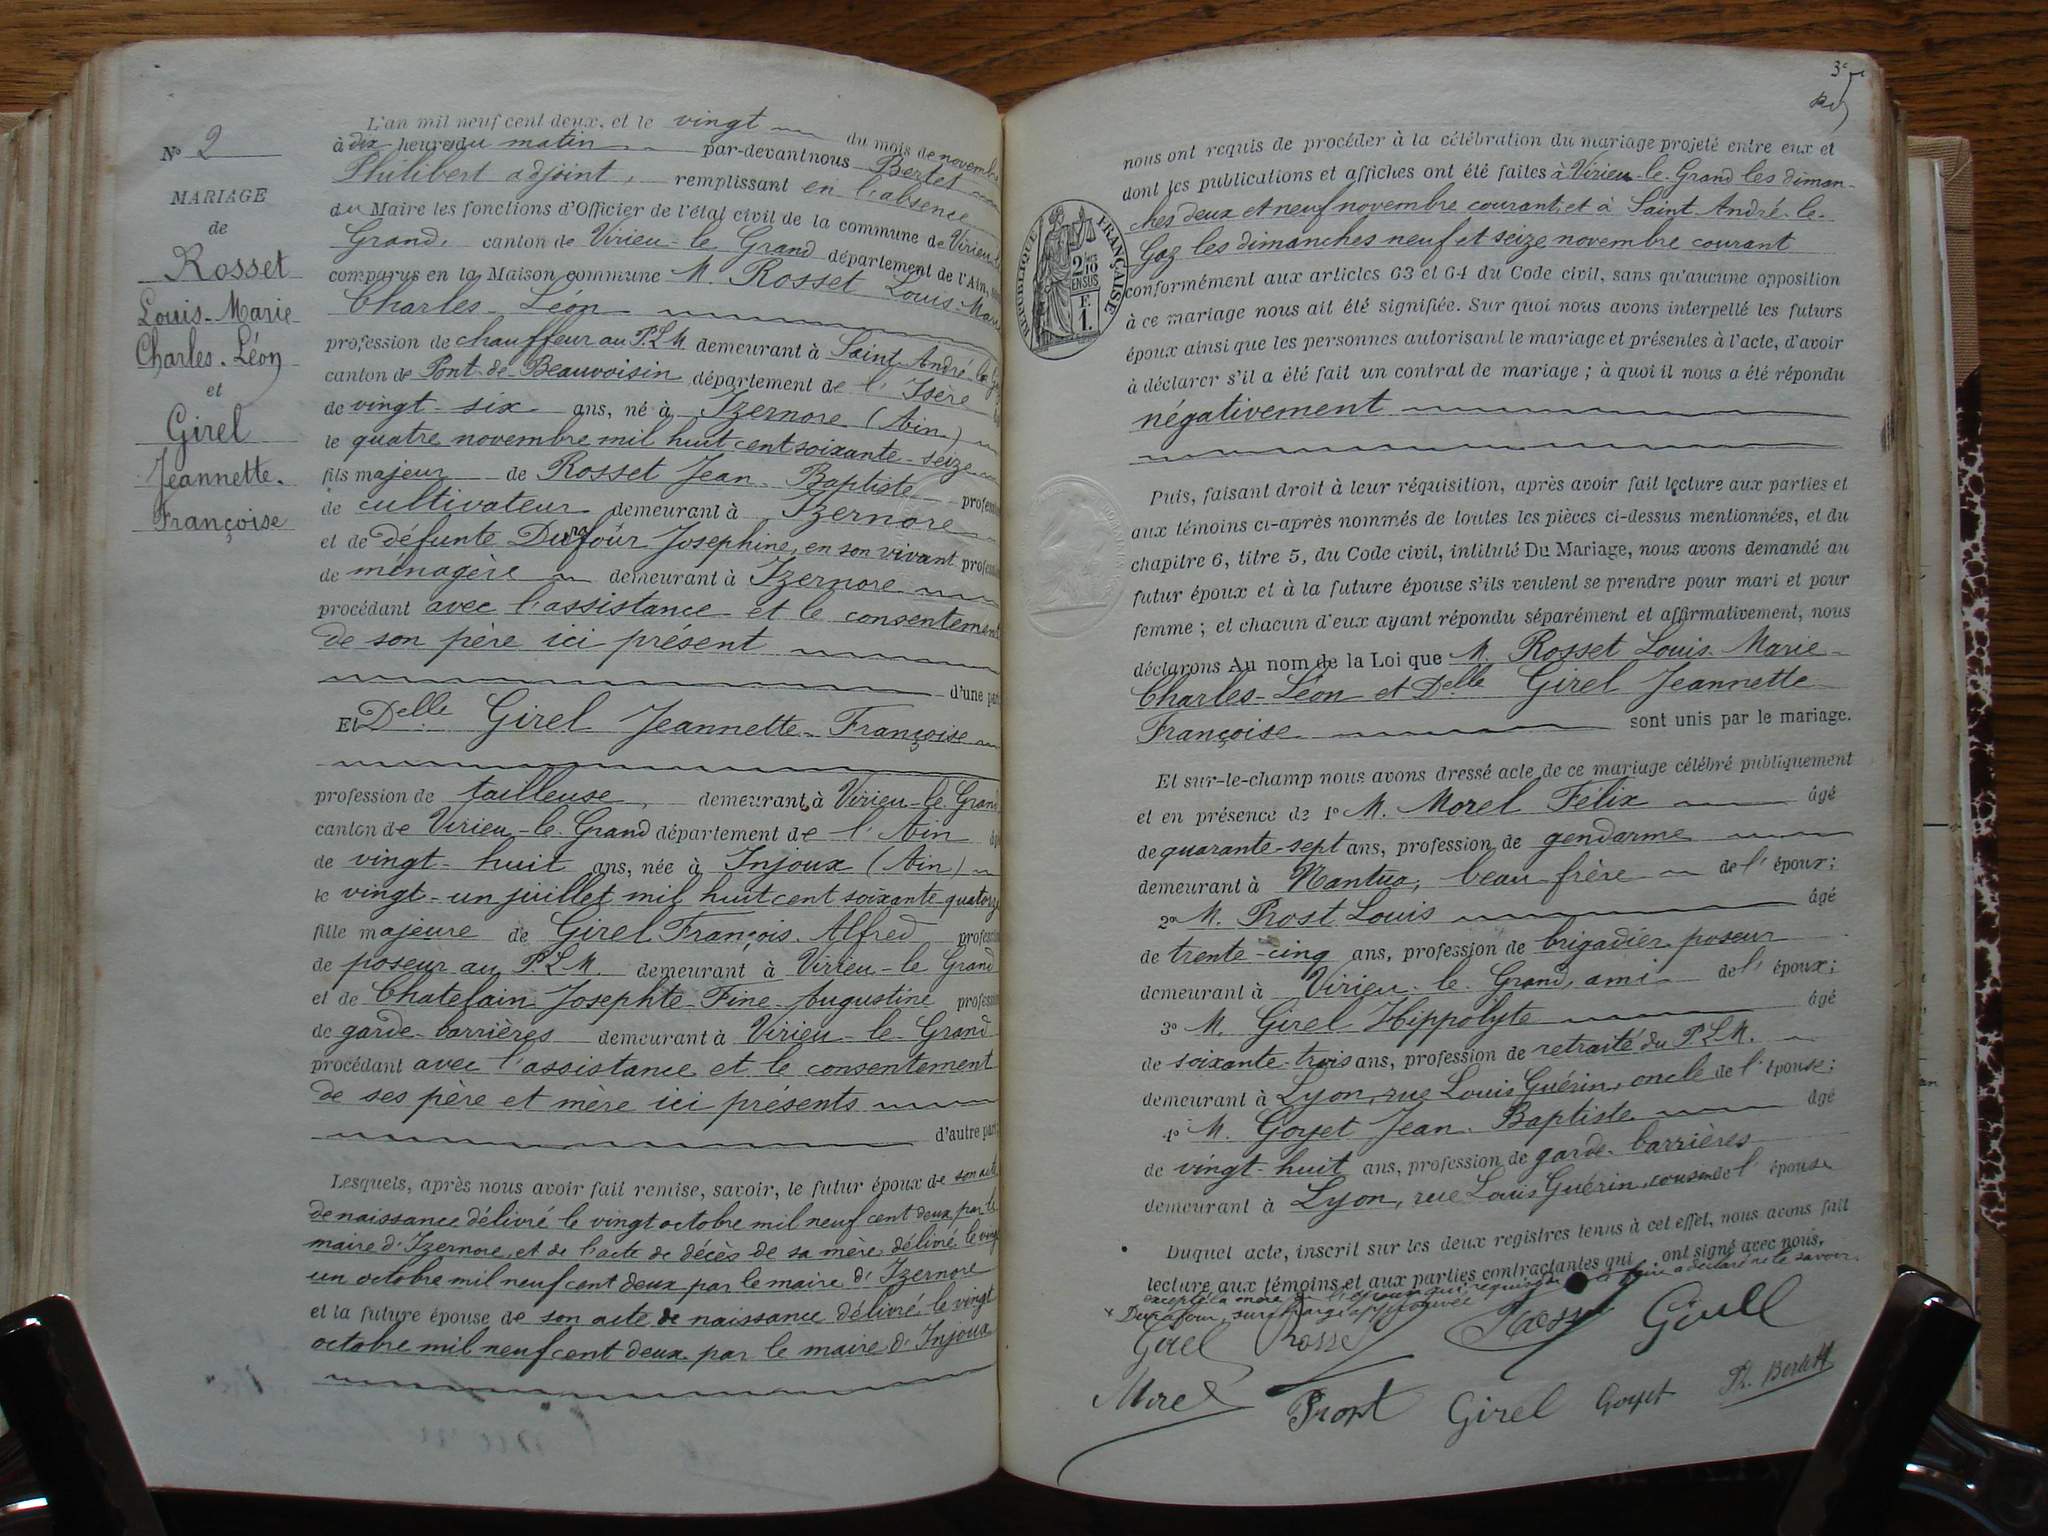 N° 2
MARIAGE
de
Rosset
Louis-Marie
Charles-Léon
et
Girel
Jeannette-
Françoise
L'an mil neuf cent deux, et le vingt du mois de novembre
à dix heures du matin par-devant nous Bertet
Philibert adjoint, remplissant en l'absence
du Maire les fonctions d'Officier de l'état civil de la commune de Virieu-le
Grand, canton de Virieu-le Grand département de l'Ain,
comparus en la Maison commune M. Rosset Louis-Marie
Charles-Léon
profession de chauffeur au P.L.M. demeurant à Saint-André-le-Gaz
canton de Pont-de-Beauvoisin département de l'Isère
de vingt-six ans, né à Izernore (Ain)
le quatre novembre mil huit cent soixante-seize
fils majeur de Rosset Jean-Baptiste profession
de cultivateur demeurant à Izernore
et de défunte Durafour Josephine, en son vivant profession
de ménagère demeurant à Izernore
procédant avec l'assistance et le consentement
de son père ici présent
d'une part
Et Delle Girel Jeannette-Françoise
profession de tailleuse, demeurant à Virieu-le-Grand
canton de Virieu-le-Grand département de l'Ain
de vingt-huit ans, née à Injoux (Ain)
le vingt-un juillet mil huit cent soixante-quatorze
fille majeure de Girel François-Alfred profession
de poseur au P.L.M. demeurant à Virieu-le Grand
et de Chatelain Josephte-Fine-Augustine profession
de garde-barrières demeurant à Virieu-le-Grand
procédant avec l'assistance et le consentement
de ses père et mère ici présents
d'autre part
Lesquels, après nous avoir fait remise, savoir, le futur époux de son acte
de naissance délivré le vingt octobre mil neuf cent deux par le
maire d'Izernore, et de l'acte de décès de sa mère, délivré le vingt
un octobre mil neuf cent deux par le maire d'Izernore
et la future épouse de son acte de naissance délivré le vingt
octobre mil neuf cent deux par le maire d'Injoux
3
nous ont requis de procéder à la célébration du mariage projeté entre eux et
dont les publications et affiches ont été faites à Virieu-le-Grand les diman-
ches deux et neuf novembre courant et à Saint-André-le-
Gaz les dimanches neuf et seize novembre courant
RÉPUBLIQUE FRANÇAISE
2/10
EN SUS
F.
1.
conformément aux articles 63 et 64 du Code civil, sans qu'aucune opposition
à ce mariage nous ait été signifiée. Sur quoi nous avons interpellé les futurs
époux ainsi que les personnes autorisant le mariage et présentes à l'acte, d'avoir
à déclarer s'il a été fait un contrat de mariage ; à quoi il nous a été répondu
négativement
Puis, faisant droit à leur réquisition, après avoir fait lecture aux parties et
aux témoins ci-après nommés de toutes les pièces ci-dessus mentionnées, et du
chapitre 6, titre 5, du Code civil, intitulé Du Mariage, nous avons demandé au
futur époux et à la future épouse s'ils veulent se prendre pour mari et pour
femme ; et chacun d'eux ayant répondu séparément et affirmativement, nous
déclarons Au nom de la Loi que M. Rosset Louis-Marie-
Charles-Léon et Delle Girel Jeannette
Françoise sont unis par le mariage.
Et sur-le-champ nous avons dressé acte de ce mariage célébré publiquement
et en présence de 1° M. Morel Félix âgé
de quarante-sept ans, profession de gendarme
demeurant à Nantua, beau-frère de l'époux ;
2° M. Prost Louis âgé
de trente-cinq ans, profession de brigadier poseur
demeurant à Virieu-le-Grand, ami de l'époux ;
3° M. Girel Hippolyte âgé
de soixante-trois ans, profession de retraité du P.L.M.
demeurant à Lyon, rue Louis Guérin, oncle de l'épouse ;
4° M. Goyet Jean-Baptiste âgé
de vingt-huit ans, profession de garde-barrières
demeurant à Lyon, rue Louis Guérin, cousin de l'épouse
Duquel acte, inscrit sur les deux registres tenus à cet effet, nous avons fait
lecture aux témoins et aux parties contractantes qui ont signé avec nous,
excepté la mère de l'épouse qui, requise de le faire a déclaré ne le savoir.
x Durafour, surchargé approuvée
Girel Rosset Rosset Girel
Morel Prost Girel Goyet Ph. Bertet